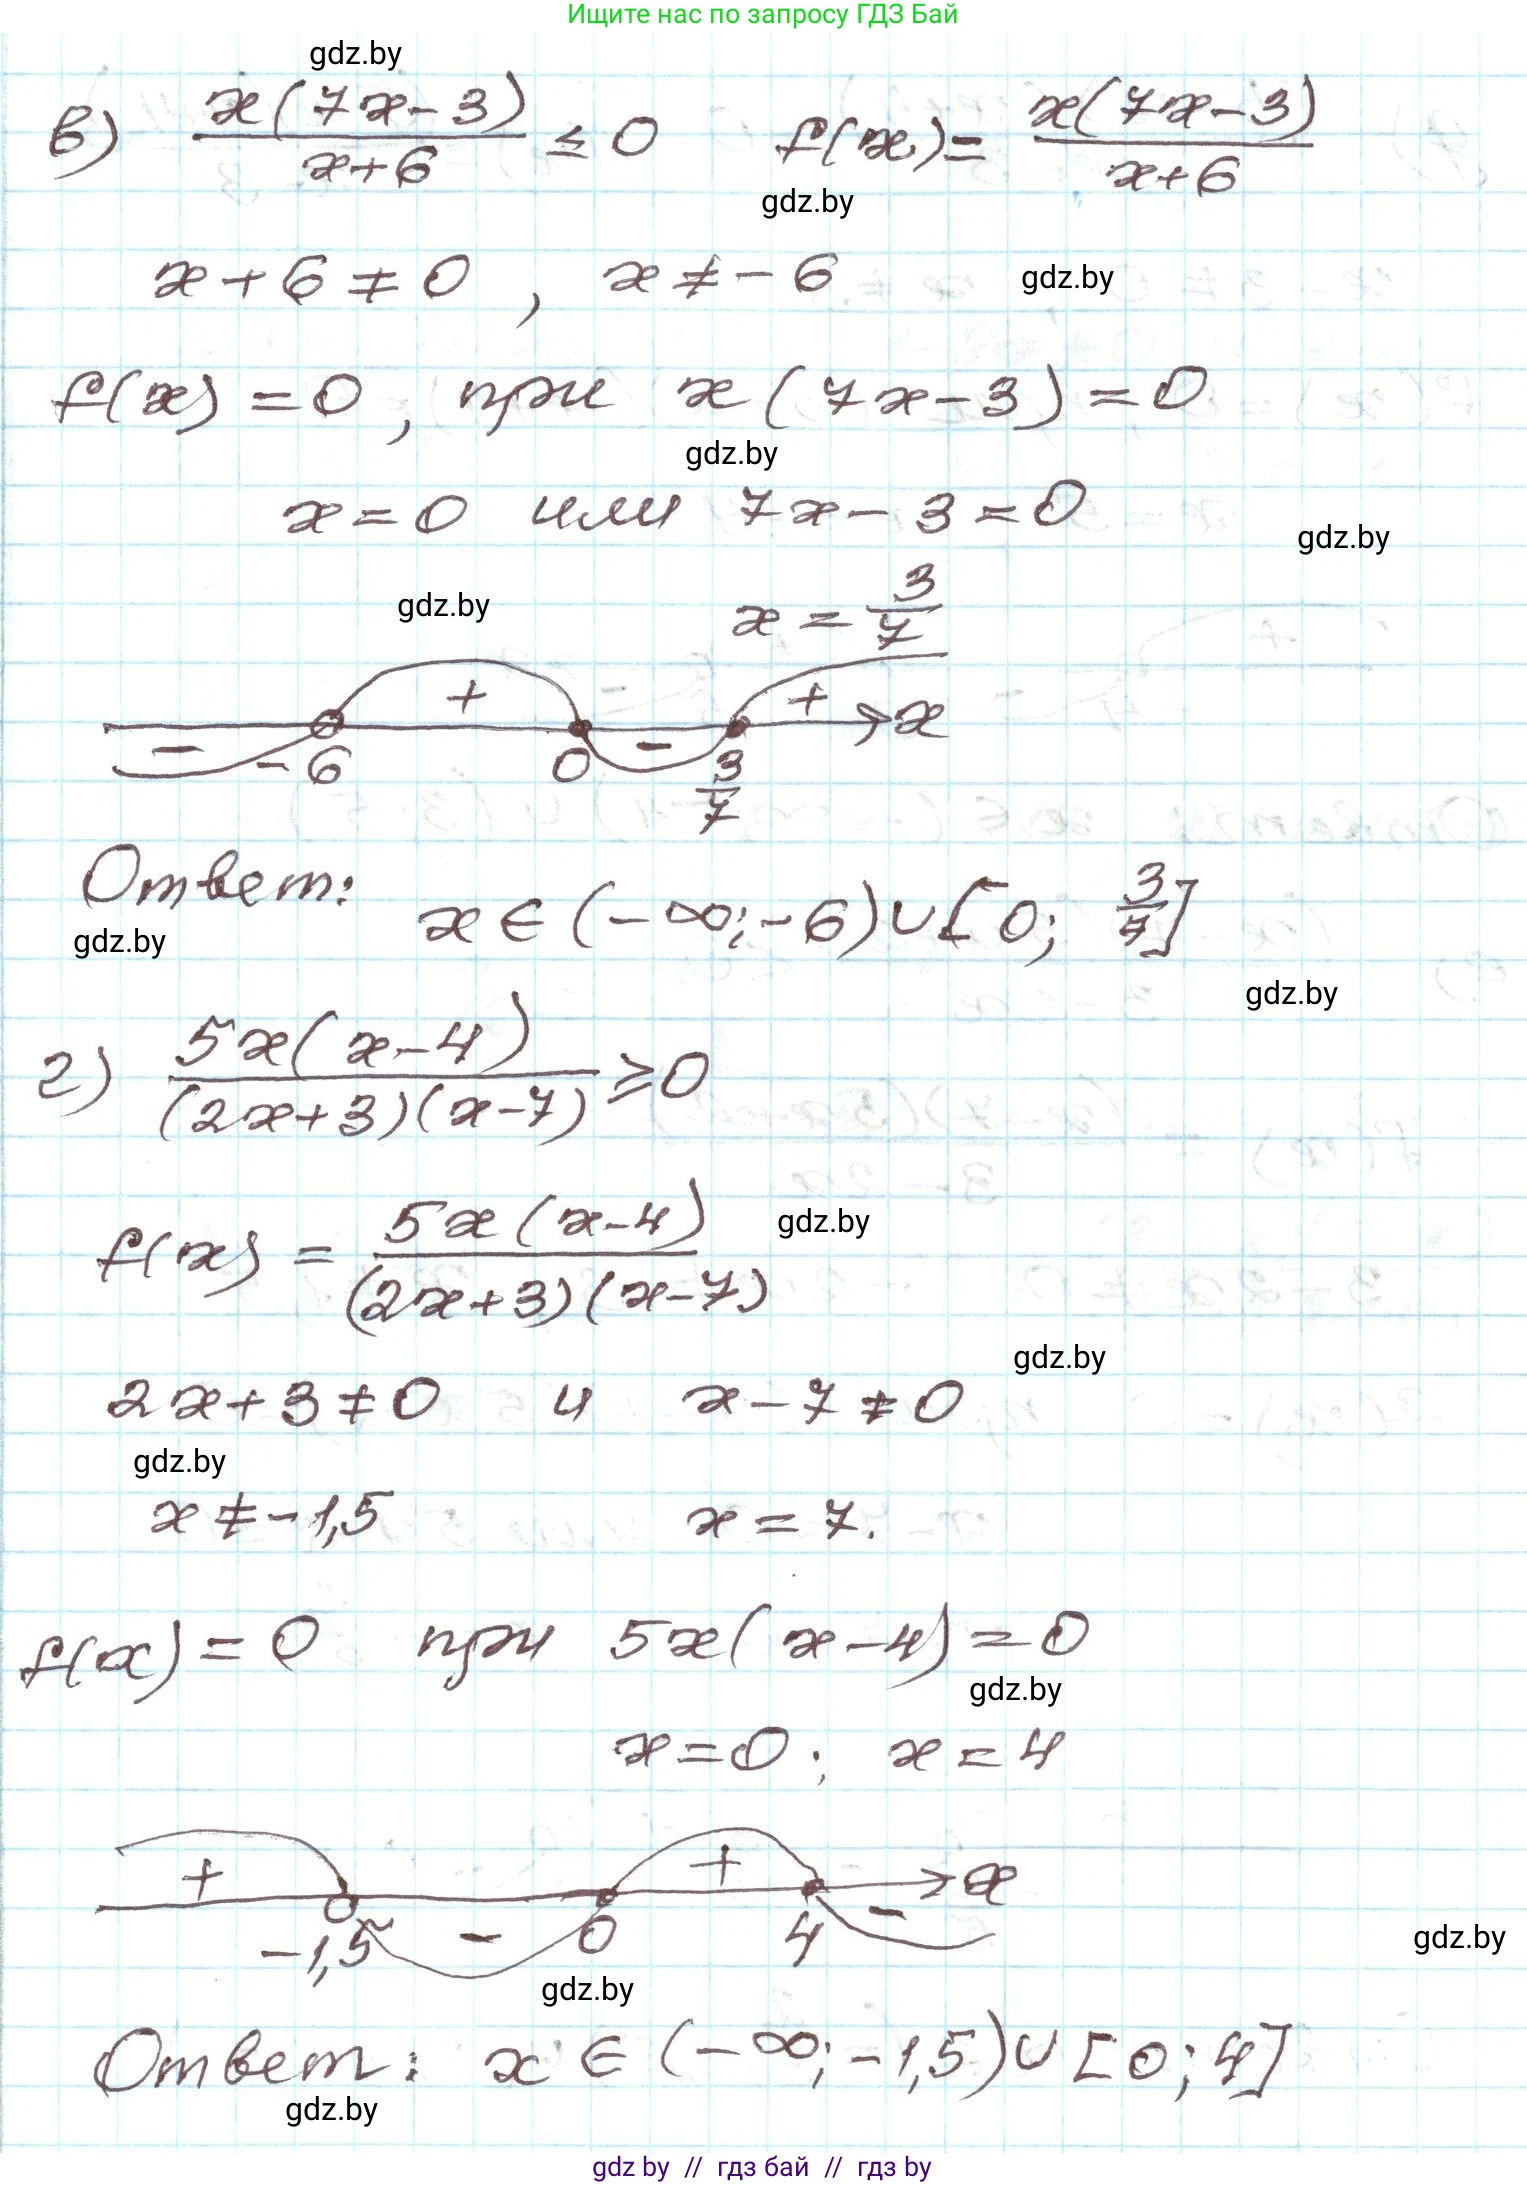 Ищите нас по запросу ГДЗ Бай
gdz.by
в) x(7x-3)/(x+6) ≤ 0 f(x)= x(7x-3)/(x+6)
gdz.by
x+6≠0, x≠-6 gdz.by
f(x)=0, при x(7x-3)=0
gdz.by
x=0 или 7x-3=0
gdz.by
gdz.by
x = 3/7
+ +
- -6 0 - 3/7 x
Ответ: x∈(-∞;-6)∪[0; 3/7]
gdz.by
gdz.by
г) 5x(x-4)/((2x+3)(x-7)) ≥0
f(x) = 5x(x-4)/((2x+3)(x-7))
gdz.by
gdz.by
2x+3≠0 и x-7≠0
gdz.by
x≠-1,5 x=7.
f(x)=0 при 5x(x-4)=0
gdz.by
x=0; x=4
+ + x
-1,5 - 0 4 -
gdz.by
gdz.by
Ответ: x∈(-∞;-1,5)∪[0;4]
gdz.by
gdz by // гдз бай // гдз by